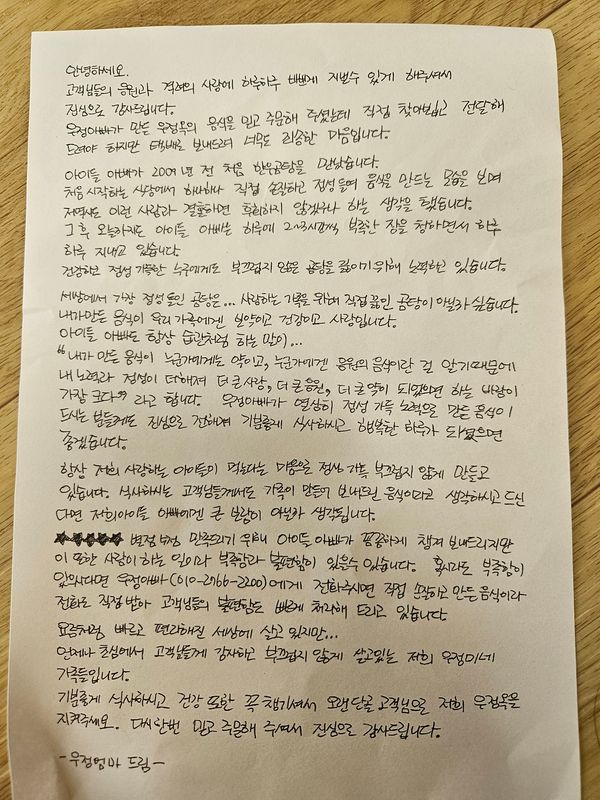 안녕하세요.
고객님들의 응원과 격려의 사랑에 하루하루 바쁘게 지낼수 있게 해주셔서
진심으로 감사드립니다.
우정아빠가 만든 우정옥의 음식을 믿고 주문해 주셨는데 직접 찾아뵙고 전달해
드려야 하지만 택배로 보내드려 너무도 죄송한 마음입니다.
아이들 아빠가 2009년 전 처음 한우곰탕을 만났습니다.
처음 시작하는 식당에서 하나하나 직접 손질하고 정성들여 음식을 만드는 모습을 보며
저역시도 이런 사람과 결혼하면 후회하지 않겠구나 하는 생각을 했습니다.
그 후 오늘까지도 아이들 아빠는 하루에 2~3시간씩 부족한 잠을 청하면서 하루
하루 지내고 있습니다.
건강하고 정성 가득한 누구에게도 부끄럽지 않은 곰탕을 끓이기 위해 노력하고 있습니다.
세상에서 가장 정성 들인 곰탕은... 사랑하는 가족을 위해 직접 끓인 곰탕이 아닐까 싶습니다.
내가 만든 음식이 우리 가족에겐 보약이고 건강이고 사랑입니다.
아이들 아빠도 항상 습관처럼 하는 말이...
"내가 만든 음식이 누군가에게는 약이고, 누군가에겐 응원의 음식이란 걸 알기 때문에
내 노력과 정성이 더해져 더 큰 사랑, 더 큰 응원, 더 큰 약이 되었으면 하는 바람이
가장 크다" 라고 합니다. 우정아빠가 열심히 정성 가득 노력으로 만든 음식이
드시는 분들께도 진심으로 전해져 기분좋게 식사하시고 행복한 하루가 되셨으면
좋겠습니다.
항상 저희 사랑하는 아이들이 먹는다는 마음으로 정성 가득 부끄럽지 않게 만들고
있습니다. 식사하시는 고객님들께서도 가족이 만들어 보내드린 음식이라고 생각하시고 드신
다면 저희아이들 아빠에겐 큰 보람이 아닐까 생각됩니다.
★★★★★ 별점 만족되기 위해 아이들 아빠가 꼼꼼하게 챙겨 보내드리지만
이 또한 사람이 하는 일이라 부족함과 불편함이 있을수 있습니다. 혹시라도 부족함이
있으시다면 우정아빠(010-2766-2200)에게 전화주시면 직접 손질하고 만든 음식이라
전화도 직접 받아 고객님들의 불편함도 빠르게 처리해 드리고 있습니다.
요즘처럼 빠르고 편리해진 세상에 살고 있지만...
언제나 초심에서 고객님들께 감사하고 부끄럽지 않게 살고있는 저희 우정이네
가족들입니다.
기분좋게 식사하시고 건강 또한 꼭 챙기셔서 오랜 단골 고객님으로 저희 우정옥을
지켜주세요. 다시한번 믿고 주문해 주셔서 진심으로 감사드립니다.
-우정엄마 드림-